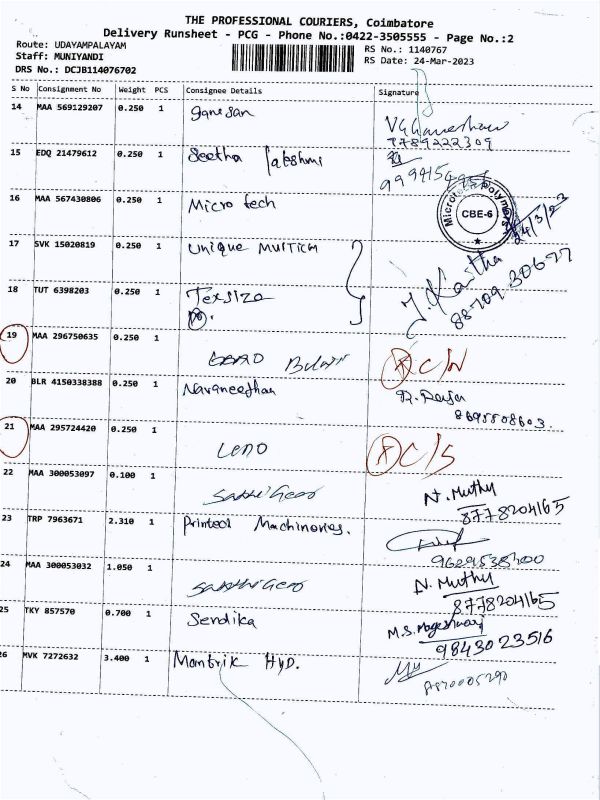 THE PROFESSIONAL COURIERS, Coimbatore
Delivery Runsheet - PCG - Phone No.:0422-3505555 - Page No.:2
Route: UDAYAMPALAYAM
RS No.: 1140767
Staff: MUNIYANDI
RS Date: 24-Mar-2023
DRS No.: DCJB114076702
S No Consignment No Weight PCS Consignee Details Signature
14 MAA 569129207 0.250 1 ganesan
7789222309
15 EDQ 21479612 0.250 1 Seetha lakshmi
16 MAA 567430806 0.250 1 Micro tech
Microtech Polymers
CBE-6
24/3/23
17 SVK 15020819 0.250 1 Unique Multicm
J. Kavitha
88709 30677
18 TUT 6398203 0.250 1 Texsize
19 MAA 296750635 0.250 1
C/N
20 BLR 4150338388 0.250 1 Navaneethan R. Raja
8695508603.
21 MAA 295724420 0.250 1 Leno C/S
22 MAA 300053097 0.100 1 Sakthi Gear N. Muthu
8778204165
23 TRP 7963671 2.310 1 Printed Machinories.
9629538200
24 MAA 300053032 1.050 1 Sakthi Gear N. Muthu
8778204165
25 TKY 857570 0.700 1 Sendika M.S. Mageshwari
98430 23516
26 MVK 7272632 3.400 1 Mantrik HYD.